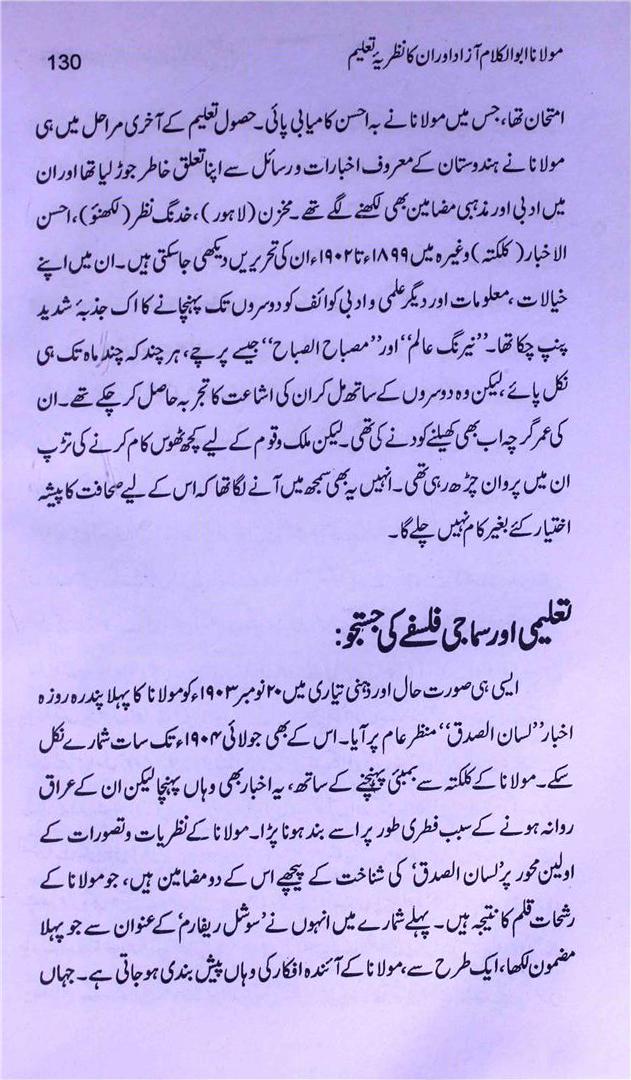 مولانا ابوالکلام آزاد اور ان کا نظریۂ تعلیم 130
امتحان تھا، جس میں مولانا نے بہ احسن کامیابی پائی۔ حصول تعلیم کے آخری مراحل میں ہی
مولانا نے ہندوستان کے معروف اخبارات و رسائل سے اپنا تعلق خاطر جوڑ لیا تھا اور ان
میں ادبی اور مذہبی مضامین بھی لکھنے لگے تھے۔ مخزن (لاہور)، خدنگ نظر (لکھنؤ)، احسن
الاخبار (کلکتہ) وغیرہ میں ۱۸۹۹ء تا ۱۹۰۲ء ان کی تحریریں دیکھی جا سکتی ہیں۔ ان میں اپنے
خیالات، معلومات اور دیگر علمی و ادبی کوائف کو دوسروں تک پہنچانے کا اک جذبۂ شدید
پنپ چکا تھا۔ ’’نیرنگ عالم‘‘ اور ’’مصباح الصباح‘‘ جیسے پرچے، ہر چند کہ چند ماہ تک ہی
نکل پائے، لیکن وہ دوسروں کے ساتھ مل کر ان کی اشاعت کا تجربہ حاصل کر چکے تھے۔ ان
کی عمر گرچہ اب بھی کھیلنے کودنے کی تھی۔ لیکن ملک و قوم کے لیے کچھ ٹھوس کام کرنے کی تڑپ
ان میں پروان چڑھ رہی تھی۔ انہیں یہ بھی سمجھ میں آنے لگا تھا کہ اس کے لیے صحافت کا پیشہ
اختیار کئے بغیر کام نہیں چلے گا۔
تعلیمی اور سماجی فلسفے کی جستجو:
ایسی ہی صورت حال اور ذہنی تیاری میں ۲۰ نومبر ۱۹۰۳ء کو مولانا کا پہلا پندرہ روزہ
اخبار ’’لسان الصدق‘‘ منظر عام پر آیا۔ اس کے بھی جولائی ۱۹۰۴ء تک سات شمارے نکل
سکے۔ مولانا کے کلکتہ سے بمبئی پہنچنے کے ساتھ، یہ اخبار بھی وہاں پہنچا لیکن ان کے عراق
روانہ ہونے کے سبب فطری طور پر اسے بند ہونا پڑا۔ مولانا کے نظریات و تصورات کے
اولین محور پر ’لسان الصدق‘ کی شناخت کے پیچھے اس کے دو مضامین ہیں، جو مولانا کے
رشحات قلم کا نتیجہ ہیں۔ پہلے شمارے میں انہوں نے ’سوشل ریفارم‘ کے عنوان سے جو پہلا
مضمون لکھا، ایک طرح سے، مولانا کے آئندہ افکار کی وہاں پیش بندی ہو جاتی ہے۔ جہاں